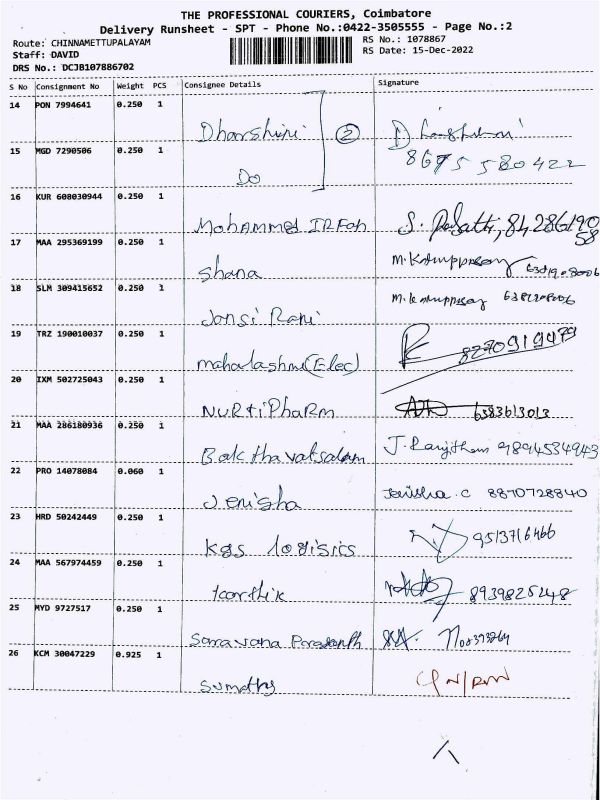 THE PROFESSIONAL COURIERS, Coimbatore
Delivery Runsheet - SPT - Phone No.:0422-3505555 - Page No.:2
Route: CHINNAMETTUPALAYAM
RS No.: 1078867
Staff: DAVID
RS Date: 15-Dec-2022
DRS No.: DCJB107886702
S No Consignment No Weight PCS Consignee Details Signature
14 PON 7994641 0.250 1
Dharshini 2
8675580422
15 MGD 7290506 0.250 1
Do
16 KUR 608030944 0.250 1
Mohammed IRFan
17 MAA 295369199 0.250 1
Shana
18 SLM 309415652 0.250 1
Jansi Rani
19 TRZ 190010037 0.250 1
mahalashmi(Elec) 8270919479
20 IXM 502725043 0.250 1
NURtiPhaRm 6383613013
21 MAA 286180936 0.250 1
Bakthavatsalam J. Ranjitham 9894534943
22 PRO 14078084 0.060 1
Jenisha Jenisha.C 8870728840
23 HRD 50242449 0.250 1
Kgs logisics 9513716466
24 MAA 567974459 0.250 1
karthik 8939825248
25 MYD 9727517 0.250 1
Saravana Prasanth
26 KCM 30047229 0.925 1
Sumathy